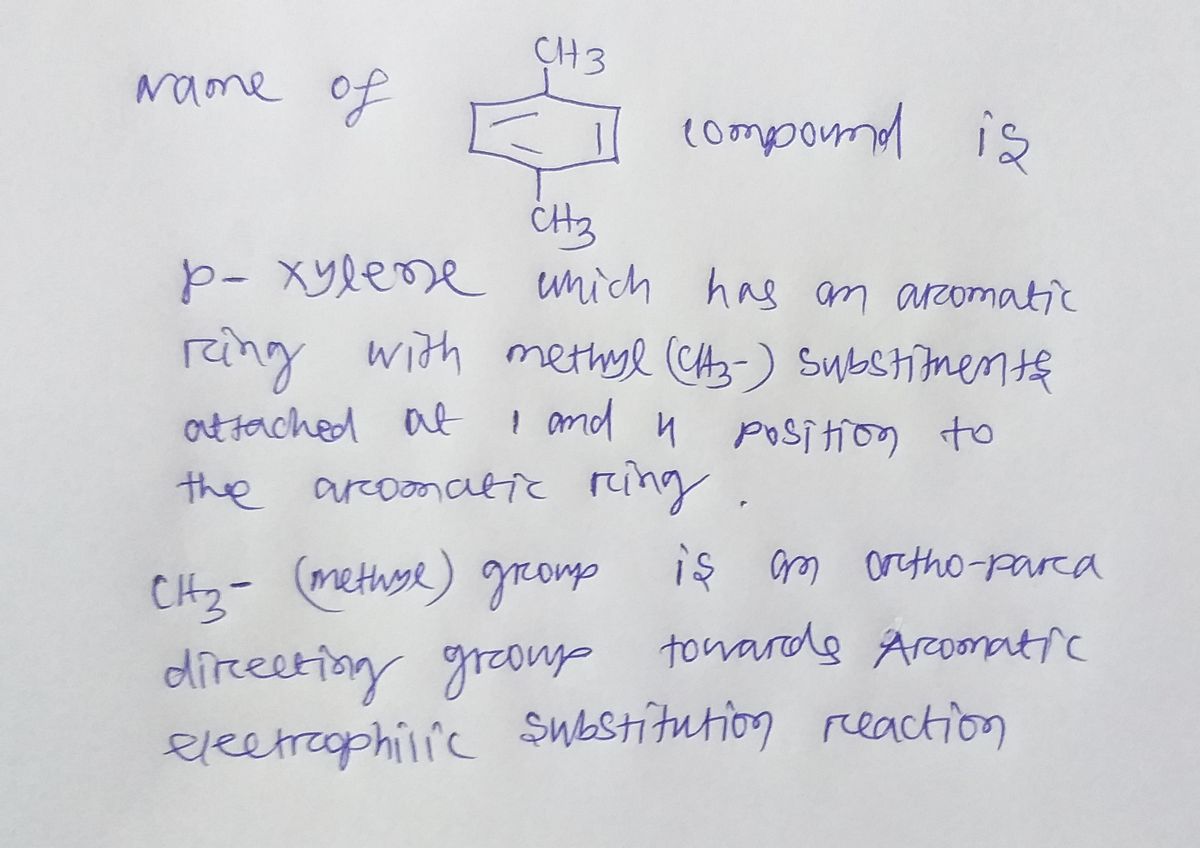 CH3
Name of compound is
CH3
p- xylene which has an aromatic
ring with methyl (CH3-) substituents
attached at 1 and 4 position to
the aromatic ring.
CH3- (methyl) group is an ortho-para
directing group towards Aromatic
electrophilic substitution reaction